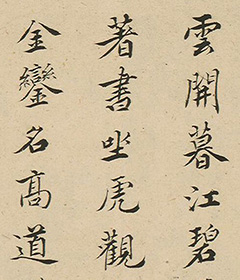 雲開暮江碧
著書坐虎觀
金鑾名高道